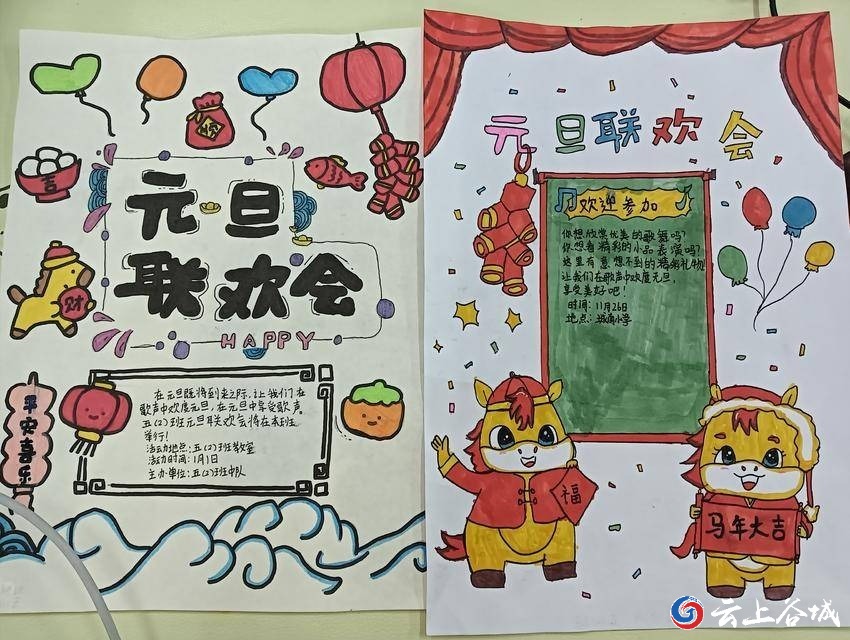 元旦
联欢会
HAPPY
吉
财
平安喜乐
在元旦既将到来之际,让我们在
歌声中欢度元旦,在元旦中享受歌声。
五(2)班元旦联欢会将在本班
举行!
活动地点:五(2)班教室
活动时间:1月1日
主办单位:五(2)班中队
元旦联欢会
欢迎参加
你想欣赏优美的歌舞吗?
你想看精彩的小品表演吗?
这里有意想不到的精彩礼物
让我们在歌声中欢度元旦,
享受美好吧!
时间:11月26日
地点:城南小学
福
马年大吉
云上谷城